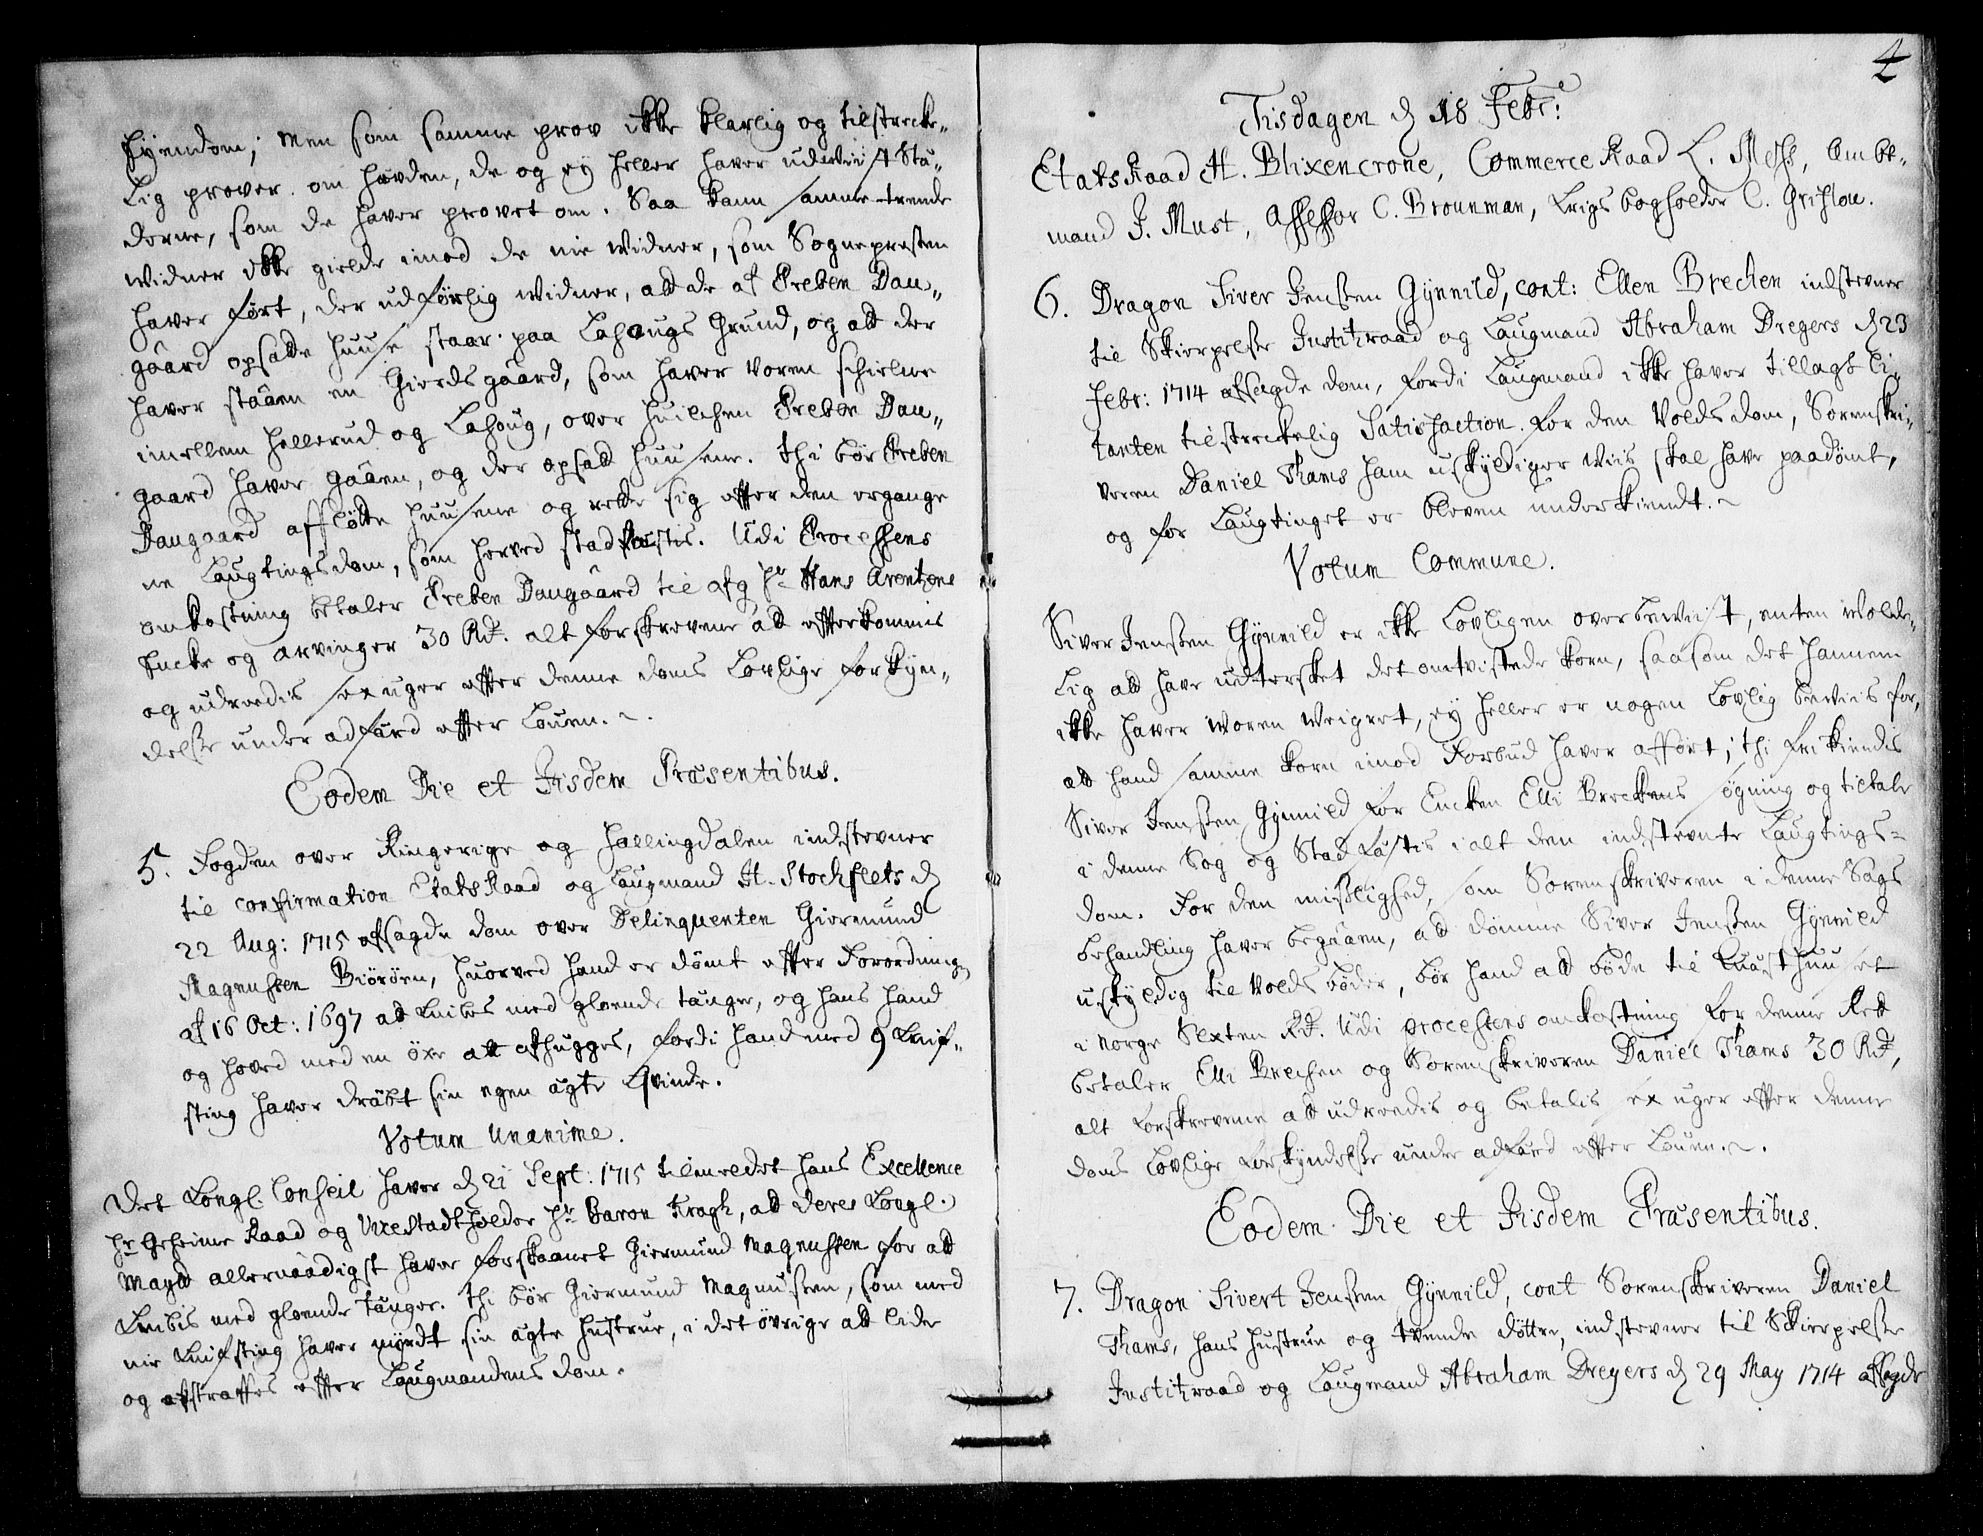 Eyendom; Men som samme prov ikke klarlig og tilstrecke„
Lig prover om hæfden, de og ey heller haver udwiist Stæ„
derne, som de haver provet om. Saa kann samme trende
widner ikke gielde imod de nie widner, som Sognepresten
haver ført, der udførlig widner, att de af Preben Dau„
gaard opsatte huuse staar paa Lahougs Grund, og att der
haver staaen en Giærdsgaard, som haver været schielne
imellem Hellerud og Lahoug, over huilchen Preben Dau„
gaard haver gaaen, og der opsatt huusene. Thi bør Preben
Daugaard affløtte huusene og rette sig effter den ergangne
ne Laugtingsdom, som herved stadfæstis. Udi Processens
omkostning betaler Preben Daugaard til afg. Hr Hans Arentzens
Encke og arvinger 30 Rdr. alt forskrevene att effterkommis
og udreedis sex uger effter denne doms Lovlige forkyn„
delse under adfærd effter Louen.
Eodem Die et Iisdem Præsentibus.
5. Fogden over Ringerige og Hallingdalen indstevner
til confirmation Etatsraad og Laugmand H. Stochflets d
22 Aug: 1715 afsagde dom over Delinquenten Giermund
Magnussen Biørøen, huorved hand er dømt effter Forordning„
af 16 Oct: 1697 att knibes med gloende tænger, og hans haand
og hoved med en øxe att afhugges, fordi hand med 9 knif„
sting haver dræbt sin egen ægte Qvinde.
Votum Unanime.
Det Kongl. Conseil haver d 21 Sept: 1715 tilmeldet hans Excellence
Hr Geheime Raad og Vicestadtholder Hr Baron Kragh, att deres Kongl.
Maytt allernaadigst haver forskaanet Giermund Magnussen for att
knibis med gloende tænger. Thi bør Giermund Magnussen, som med
nie knifsting haver myrdt sin ægte hustrue, i det øvrige att lide
og afstraffes effter Laugmandens dom.
4
Tisdagen d 18 Febr:
Etatsraad H. Blixencrone, Commerce Raad L. Mechs, Ambt„
mand J. Must, Assessor C. Brounman, Krigsbogholder C. Grislou.
6. Dragon Siver Jenssen Gynnild, cont: Ellen Brechen indstevner
til Skierpelse Justitzraad og Laugmand Abraham Dreyers d 23
Febr: 1714 afsagde dom, fordi Laugmand ikke haver tillagt Ci„
tanten tilstreckelig Satisfaction for den Voldsdom, Sorenskri„
veren Daniel Thams ham uskyldiger wiis skal have paadømt,
og for Laugtinget er bleven underkiendt.
Votum Commune.
Siver Jenssen Gynnild er ikke Lovligen overbewiist, enten Wolde„
Lig att have udtersket det omtvistede korn, saasom det hannem
ikke haver woren weigret, ey heller er nogen Lovlig bewiis for,
att hand samme korn imod Forbud haver afført; thi frikiendis
Siver Jenssen Gynnild for Encken Elli Breckens søgning og tiltale
i denne Sag og Stadfæstis i alt den indstevnte Laugtings=
dom. For den misslighed, som Sorenskriveren i denne Sags
behandling haver begaaen, att dømme Siver Jenssen Gynnild
uskyldig til Voldsbøder, bør hand att bøde til Qvæsthuuset
i Norge Sexten Rdr. Udi processens omkostning for denne Rett
betaler Elli Brechen og Sorenskriveren Daniel Thams 30 Rdr,
alt forskrevene att udreedis og betalis sex uger effter denne
doms Lovlige forkyndelse under adfærd effter Louen.
Eodem Die et Iisdem Præsentibus.
7. Dragon Sivert Jenssen Gynnild, cont Sorenskriveren Daniel
Thams, hans hustrue og tvende døttre, indstevner til Skierpelse
Justitzraad og Laugmand Abraham Dreyers d 29 May 1714 afsagde